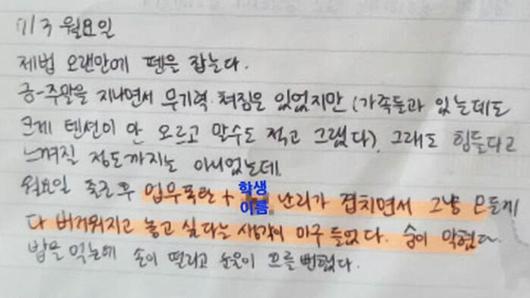 7/3 월요일
제법 오랜만에 펜을 잡는다.
금-주말을 지나면서 무기력. 쳐짐은 있었지만 (가족들과 있는데도
크게 텐션이 안 오르고 말수도 적고 그랬다). 그래도 힘들다고
느껴질 정도까지는 아니었는데
월요일 출근 후 업무폭탄 + 학생 이름 난리가 겹치면서 그냥 모든게
다 버거워지고 놓고 싶다는 생각이 마구 들었다. 숨이 막혔다.
밥을 먹는데 손이 떨리고 눈물이 흐를 뻔했다.